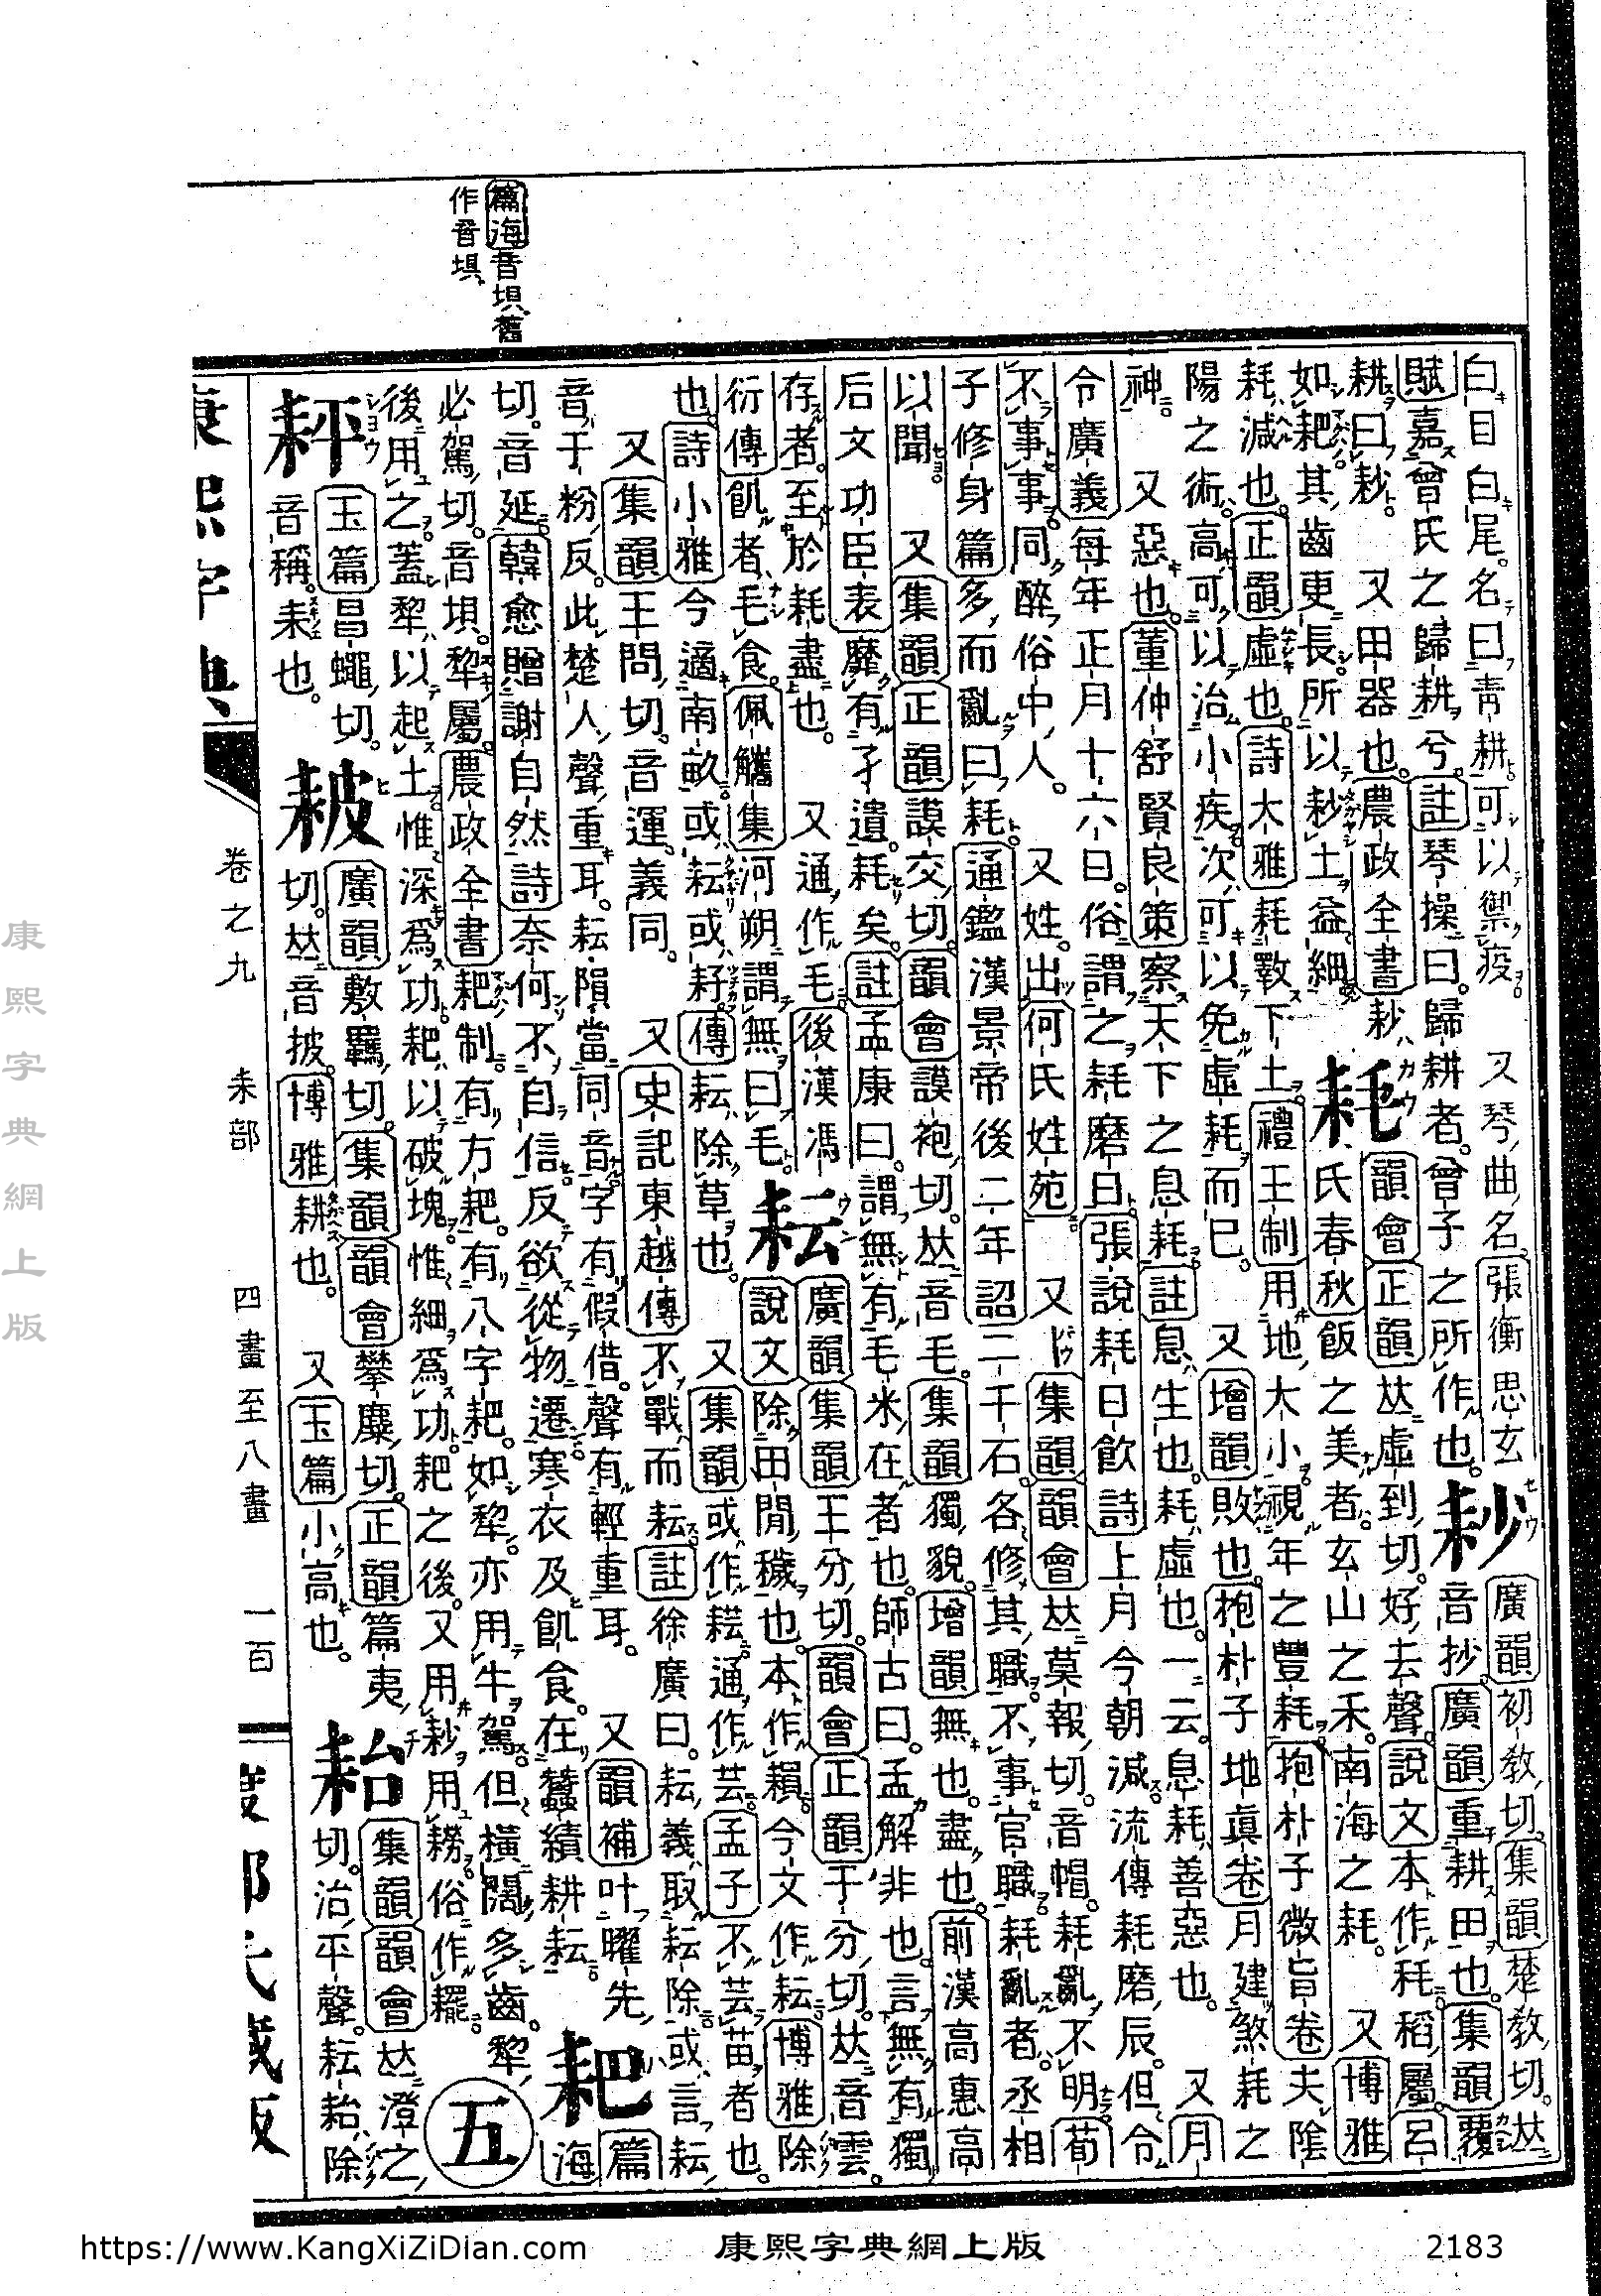 篇海音垻舊
作音垻
曰目白尾名曰靑耕可以禦疫 又琴曲名張衡思玄
賦嘉曾氏之歸耕兮註琴操曰歸耕者曾子之所作也
耖 廣韻初敎切集韻楚敎切𠀤
音抄廣韻重耕田也集韻覆
耕曰耖 又田器也農政全書耖
如耙其齒更長所以耖土益細
耗 韻會正韻𠀤虛到切好去聲說文本作秏稻屬呂
氏春秋飯之美者玄山之禾南海之耗 又博雅
耗減也正韻虛也詩大雅耗斁下土禮王制用地大小視年之豐耗抱朴子微旨卷夫陰
陽之術高可以治小疾次可以免虛耗而已 又增韻敗也抱朴子地眞卷月建煞耗之
神 又惡也董仲舒賢良策察天下之息耗註息生也耗虛也一云息耗善惡也 又月
令廣義每年正月十六日俗謂之耗磨日張說耗日飮詩上月今朝減流傳耗磨辰但令
不事事同醉俗中人 又姓出何氏姓苑 又集韻韻會𠀤莫報切音帽耗亂不明荀
子修身篇多而亂曰耗通鑑漢景帝後二年詔二千石各修其職不事官職耗亂者丞相
以聞 又集韻正韻謨交切韻會謨袍切𠀤音毛集韻獨貌增韻無也盡也前漢高惠高
后文功臣表靡有孑遺耗矣註孟康曰謂無有毛米在者也師古曰孟解非也言無有獨
存者至於耗盡也 又通作毛後漢馮
衍傳飢者毛食佩觿集河朔謂無曰毛
耘 廣韻集韻王分切韻會正韻于分切𠀤音雲
說文除田閒穢也本作䅵今文作耘博雅除
也詩小雅今適南畝或耘或耔傳耘除草也 又集韻或作𦓷通作芸孟子不芸苗者也
又集韻王問切音運義同 又史記東越傳不戰而耘註徐廣曰耘義取耘除或言耘
音于粉反此楚人聲重耳耘隕當同音字有假借聲有輕重耳 又韻補叶曜先
切音延韓愈贈謝自然詩奈何不自信反欲從物遷寒衣及飢食在蠶績耕耘
耙 篇海
必駕切音垻犂屬農政全書耙制有方耙有八字耙如犂亦用牛駕但橫闊多齒犂
後用之蓋犂以起土惟深爲功耙以破塊惟細爲功耙之後又用耖用耮俗作䎱
五
玉篇昌蠅切
音稱耒也
耚 廣韻敷羈切集韻韻會攀糜切正韻篇夷
切𠀤音披博雅耕也 又玉篇小高也
耛 集韻韻會𠀤澄之
切治平聲耘耛除
康熙字典
卷之九 耒部 四畫至八畫 一百
康熙字典網上版
https://www.KangXiZiDian.com 康熙字典網上版 2183